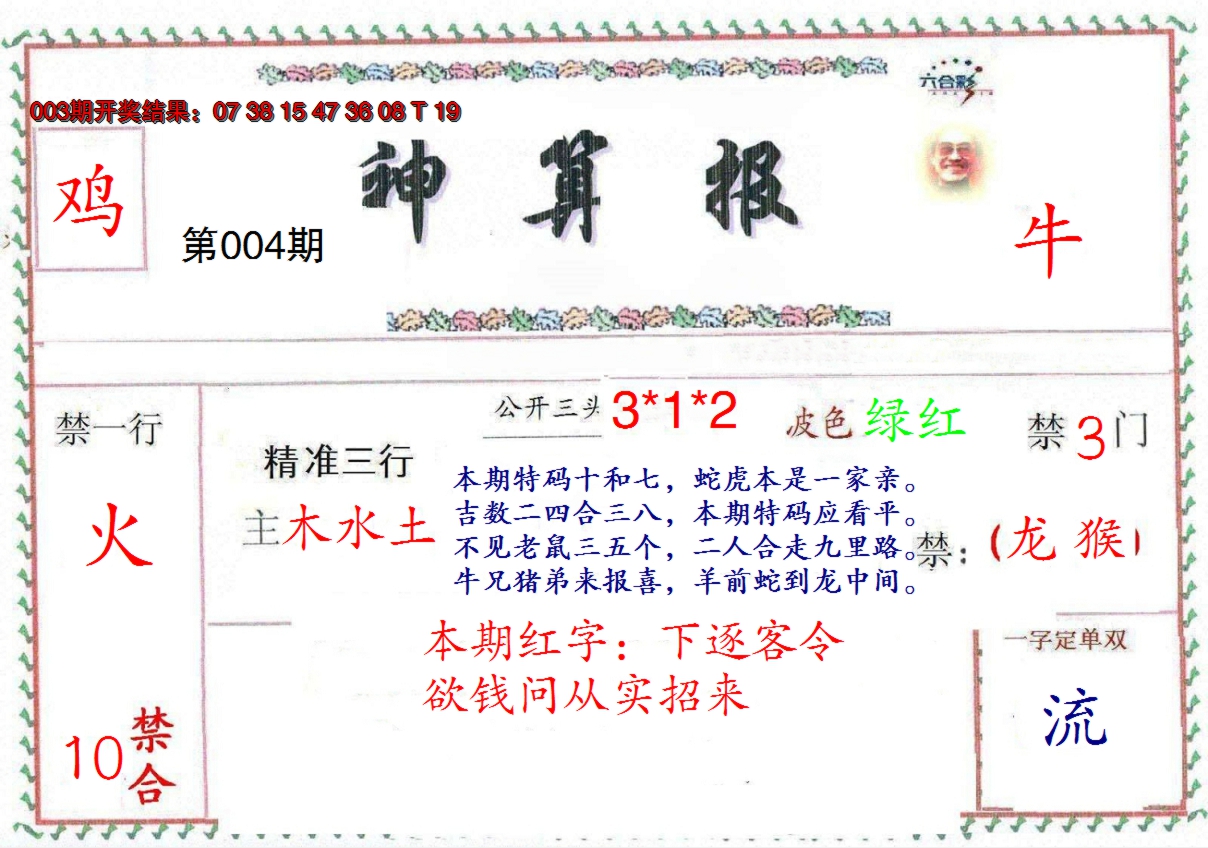 六合彩
003期开奖结果：07 38 15 47 36 08 T 19
鸡
神算报
第004期
牛
禁一行
火
10禁合
精准三行
主木水土
公开三头 3*1*2
波色 绿红
禁3门
本期特码十和七，蛇虎本是一家亲。
吉数二四合三八，本期特码应看平。
不见老鼠三五个，二人合走九里路。
牛兄猪弟来报喜，羊前蛇到龙中间。
禁：（龙 猴）
本期红字：下逐客令
欲钱问从实招来
一字定单双
流